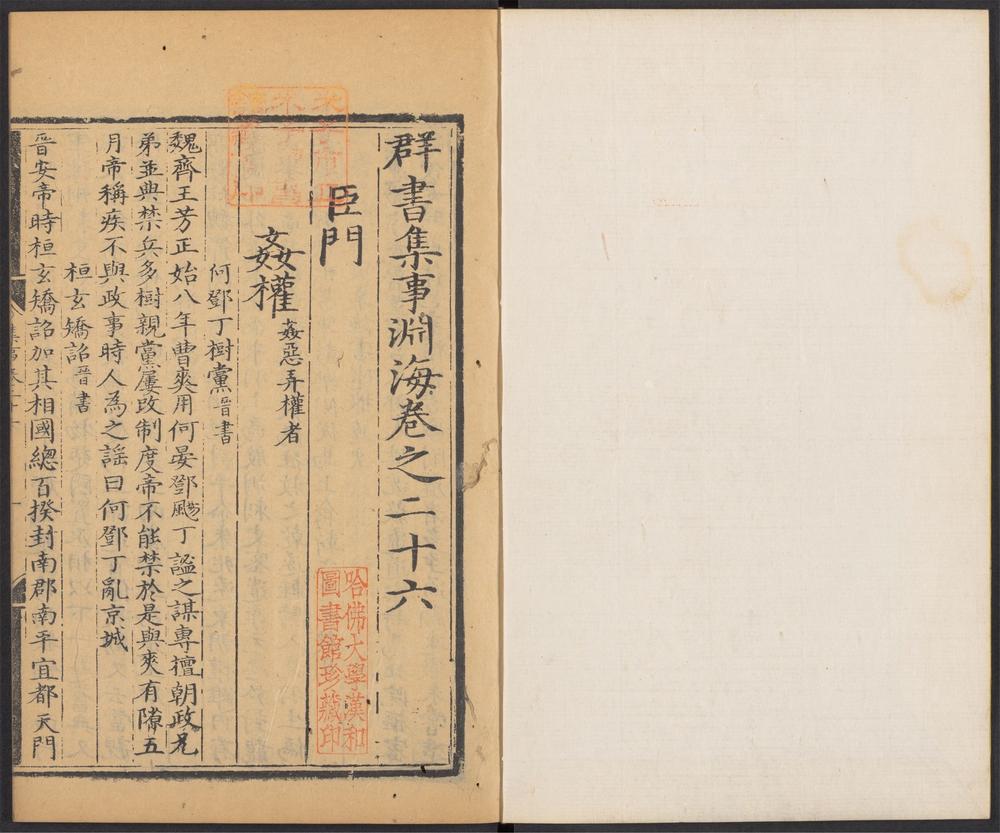 群書集事淵海卷之二十六
臣門
姦權姦惡弄權者
何鄧丁樹黨晉書
魏齊王芳正始八年曹爽用何晏鄧颺丁謐之謀專擅朝政兄
弟並典禁兵多樹親黨屢改制度帝不能禁於是與爽有隙五
月帝稱疾不與政事時人為之謠曰何鄧丁亂京城
桓玄矯詔晉書
晉安帝時桓玄矯詔加其相國總百揆封南郡南平宜都天門
哈佛大學漢和
圖書館珍藏印